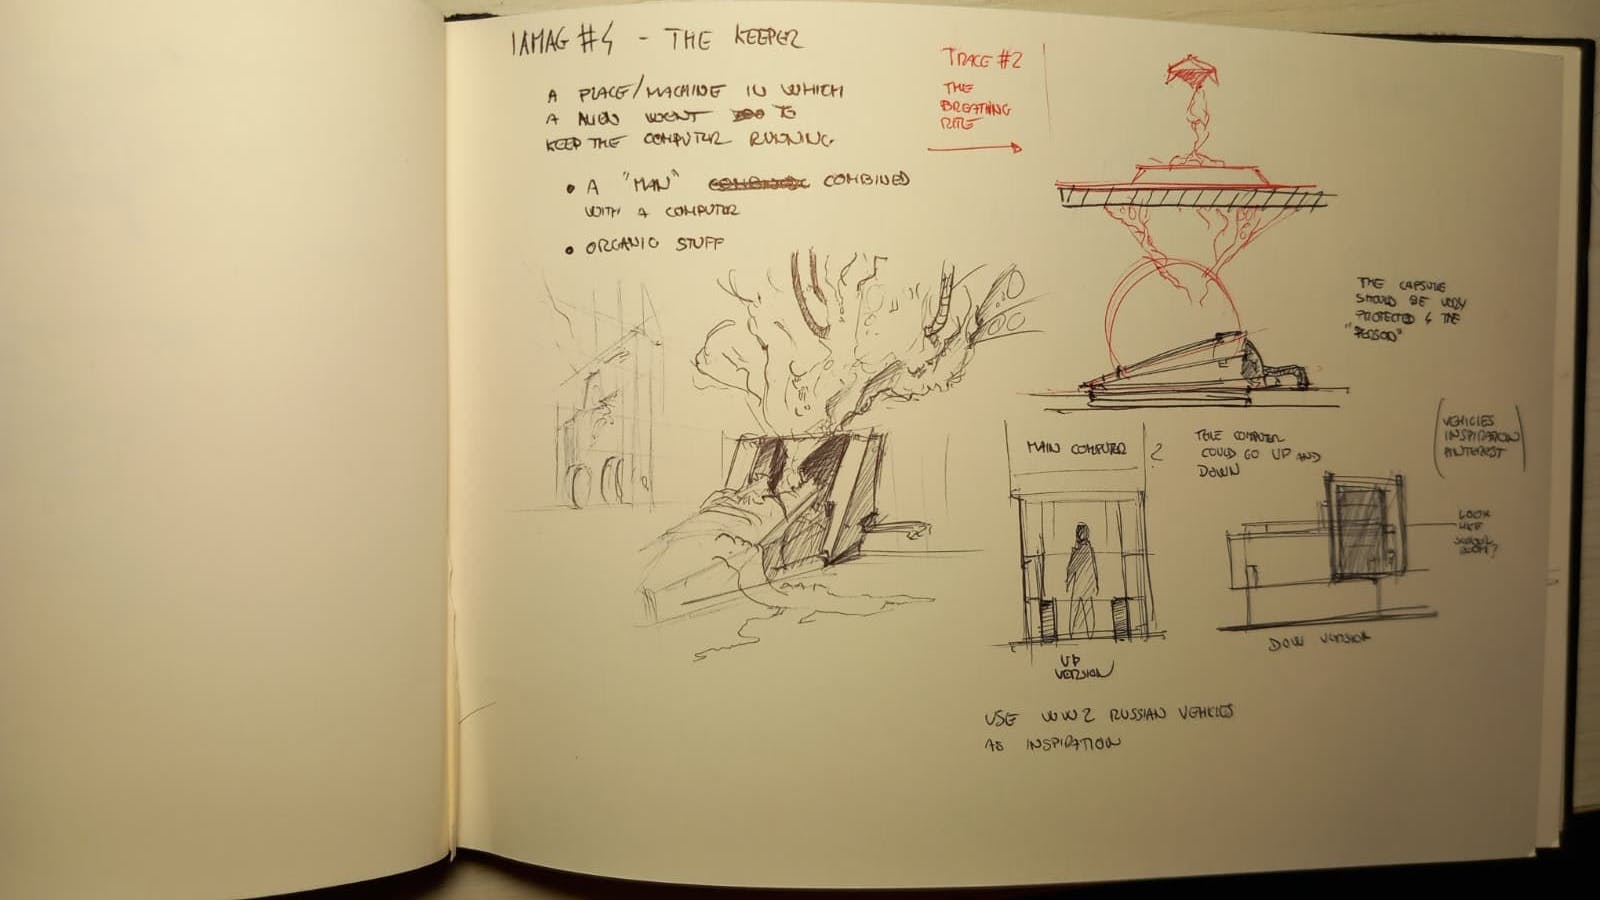 IAMAG #4 - THE KEEPER
A PLACE/MACHINE IN WHICH
A ALIEN WENT TO
KEEP THE COMPUTER RUNNING
• A "MAN" COMBINED
WITH A COMPUTER
• ORGANIC STUFF
TRACE #2
THE
BREATHING
RITE
THE CAPSULE
SHOULD BE VERY
PROTECTED & THE
"PERSON"
MAIN COMPUTER
?
THE COMPUTER
COULD GO UP AND
DOWN
VEHICLES
INSPIRATION
PINTEREST
LOOK
LIKE
UP
VERSION
DOW VERSION
USE WW2 RUSSIAN VEHICLES
AS INSPIRATION